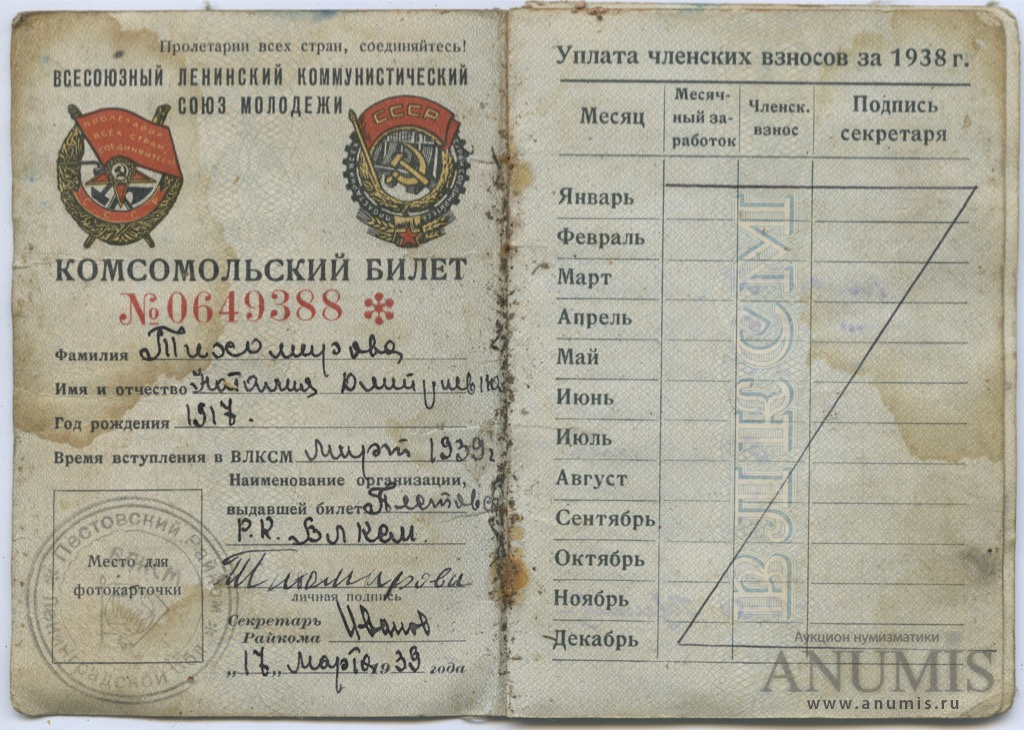 Пролетарии всех стран, соединяйтесь!
ВСЕСОЮЗНЫЙ ЛЕНИНСКИЙ КОММУНИСТИЧЕСКИЙ
СОЮЗ МОЛОДЕЖИ
ПРОЛЕТАРИИ
ВСЕХ СТРАН,
СОЕДИНЯЙТЕСЬ
СССР
СССР
КОМСОМОЛЬСКИЙ БИЛЕТ
№0649388 *
Фамилия Тихомирова
Имя и отчество Наталия Дмитриевна
Год рождения 1917.
Время вступления в ВЛКСМ март 1939 г
Наименование организации,
выдавшей билет Пестовск
Р.К. ВЛКСМ.
Тихомирова
личная подпись
Место для
фотокарточки
Пестовский Райком
ВЛКСМ
Ленинградской обл
Секретарь
Райкома Иванов
„17„ марта 1939 года
Уплата членских взносов за 1938 г.
Месяц
Месяч-
ный за-
работок
Членск.
взнос
Подпись
секретаря
Январь
Февраль
Март
Апрель
Май
Июнь
Июль
Август
Сентябрь
Октябрь
Ноябрь
Декабрь
ВЛКСМ
Аукцион нумизматики
ANUMIS
www.anumis.ru